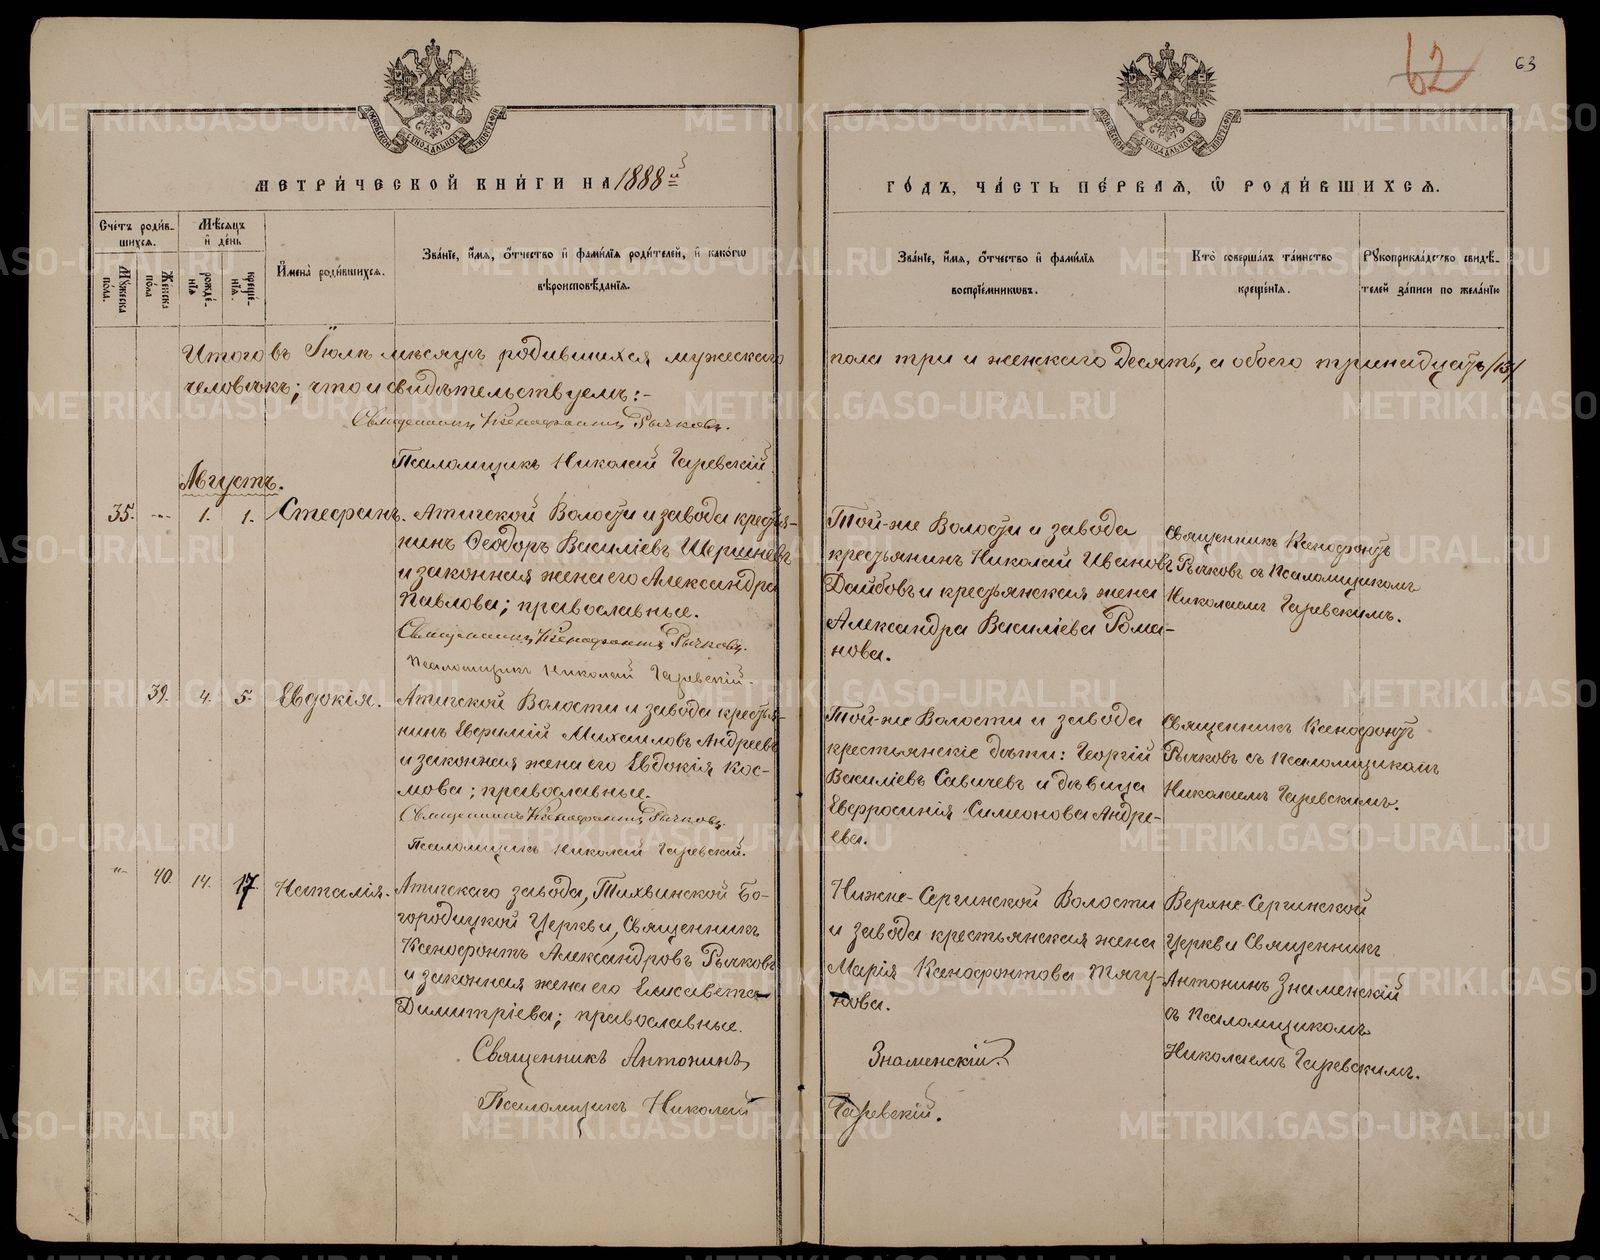 62
63
МЕТРИ́ЧЕСКОЙ КНИ́ГИ НА 1888 й
ГО́ДЪ, ЧА́СТЬ ПЕ́РВАЯ, Ѽ РОДИ́ВШИХСЯ.
Сче́тъ роди́в-
шихся.
Мѣсяцъ
и де́нь
Му́жеска по́ла.
Же́нска по́ла
рожде́-
нїя
креще́-
нїя.
И́мена̀ роди́вшихся.
Зва́нїе, и́мя, о́тчество и фами́лїя роди́телей, и како́гѡ
вѣроисповѣ́данїя.
Зва́нїе, и́мя, о́тчество и фами́лїя
воспрїе́мникѡвъ.
Кто̀ соверша́лъ та́инство
креще́нїя.
Рꙋкоприкла́дство свидѣ́-
телей за́писи по жела́нїю
Итого въ Іюлѣ мѣсяцѣ родившихся мужескаго пола три и женскаго десять, а обоего тринадцать /13/
человѣкъ; что и свидѣтельствуемъ:-
Священникъ Ксенофонтъ Рычковъ.
Псаломщикъ Николай Гаревскій.
Августъ.
35. -- 1. 1. Стефанъ.
Атигской Волости и завода крестья-
нинъ Ѳеодоръ Василіевъ Шершневъ
и законная жена его Александра
Павлова; православные.
Священникъ Ксенофонтъ Рычковъ.
Псаломщикъ Николай Гаревскій.
Той-же Волости и завода
крестьянинъ Николай Ивановъ
Даибовъ и крестьянская жена
Александра Василіева Рома-
нова.
Священникъ Ксенофонтъ
Рычковъ съ Псаломщикомъ
Николаемъ Гаревскимъ.
39. 4. 5. Евдокія.
Атигской Волости и завода крестья-
нинъ Евфимій Михаиловъ Андреевъ
и законная жена его Евдокія Кос-
мова; православные.
Священникъ Ксенофонтъ Рычковъ.
Псаломщикъ Николай Гаревскій.
Той-же Волости и завода
крестьянскіе дѣти: Георгій
Василіевъ Савичевъ и дѣвица
Евфросинія Симеонова Андре-
ева.
Священникъ Ксенофонтъ
Рычковъ съ Псаломщикомъ
Николаемъ Гаревскимъ.
" 40. 14. 17. Наталія.
Атигскаго завода, Тихвинской Бо-
городицкой Церкви, Священникъ
Ксенофонтъ Александровъ Рычковъ
и законная жена его Елисавета
Димитріева; православные.
Нижне-Сергинской Волости
и завода крестьянская жена
Марія Ксенофонтова Тягу-
нова.
Верхне-Сергинской
Церкви Священникъ
Антонинъ Знаменскій
съ Псаломщикомъ
Николаемъ Гаревскимъ.
Священникъ Антонинъ Знаменскій.
Псаломщикъ Николай Гаревскій.
METRIKI.GASO-URAL.RU